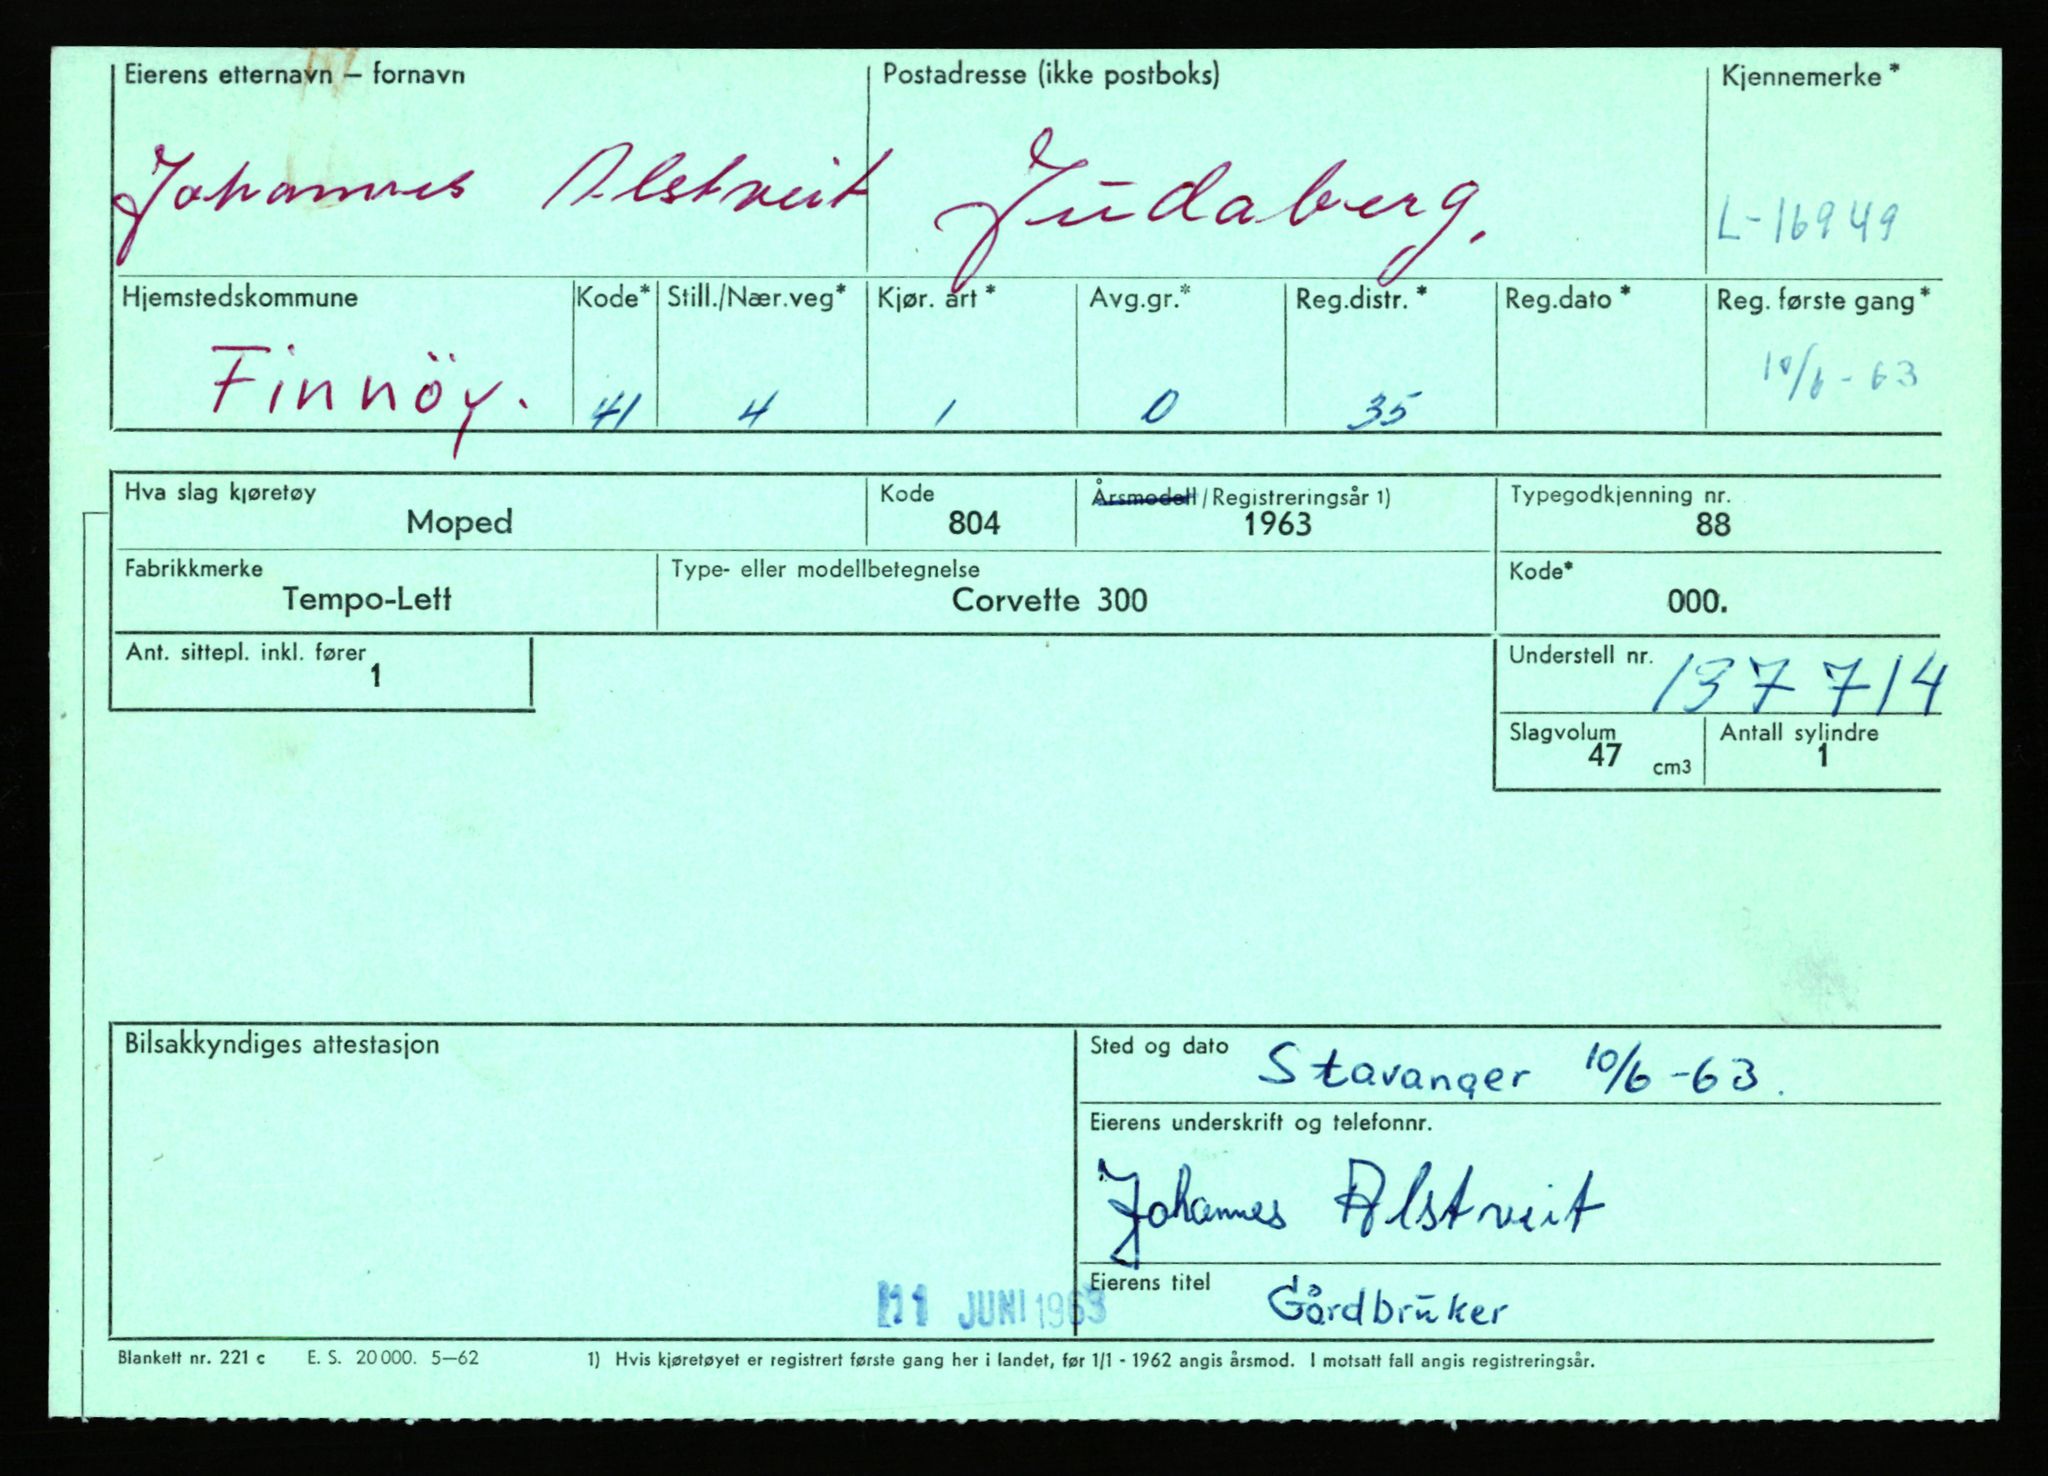 Eierens etternavn – fornavn Postadresse (ikke postboks) Kjennemerke*
Johannes Alstveit Judaberg. L-16949
Hjemstedskommune Kode* Still./Nær.veg* Kjør. art* Avg.gr.* Reg.distr.* Reg.dato* Reg. første gang*
Finnöy. 41 4 1 0 35 10/6-63
Hva slag kjøretøy Kode Årsmodell/Registreringsår 1) Typegodkjenning nr.
Moped 804 1963 88
Fabrikkmerke Type- eller modellbetegnelse Kode*
Tempo-Lett Corvette 300 000.
Ant. sittepl. inkl. fører 1 Understell nr. 137714
Slagvolum Antall sylindre
47 cm3 1
Bilsakkyndiges attestasjon Sted og dato Stavanger 10/6-63.
Eierens underskrift og telefonnr.
Johannes Alstveit
Eierens titel Gårdbrüker
11 JUNI 1963
Blankett nr. 221 c E. S. 20000. 5–62 1) Hvis kjøretøyet er registrert første gang her i landet, før 1/1 - 1962 angis årsmod. I motsatt fall angis registreringsår.